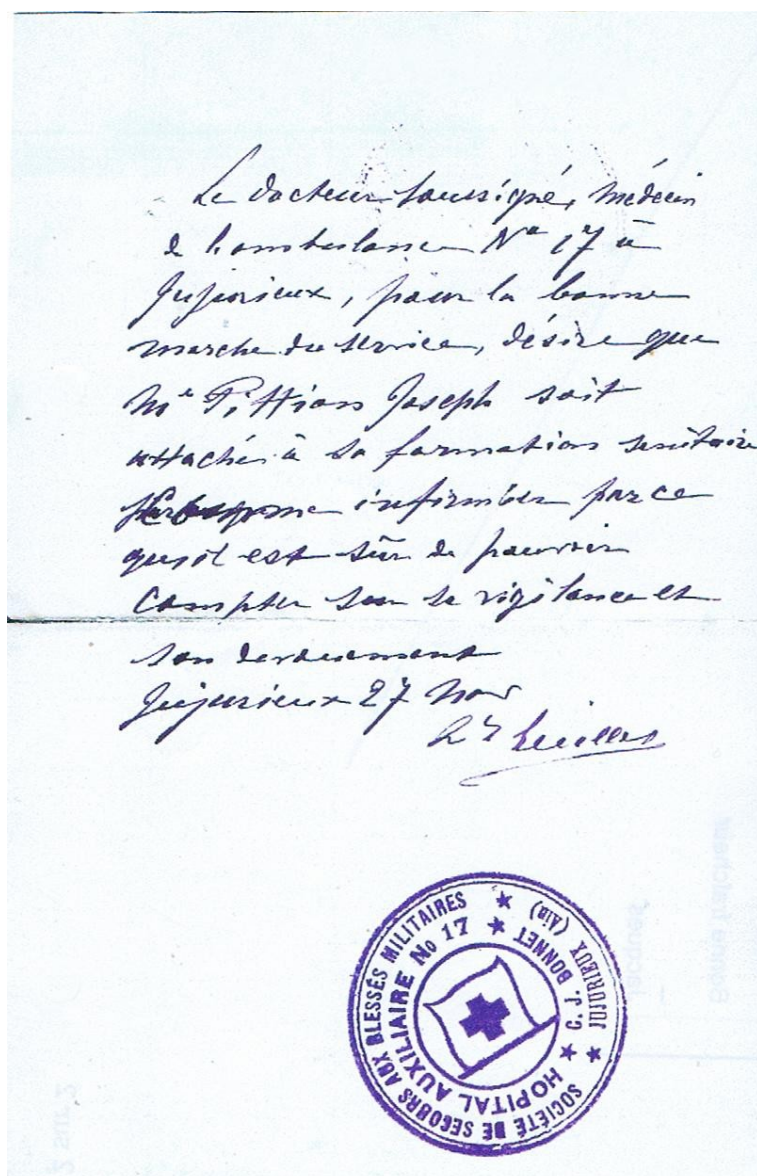 Le docteur soussigné, médecin
de l'ambulance No 17 à
Jujurieux, pour la bonne
marche du service, désire que
Mr Pittion Joseph soit
attaché à sa formation sanitaire
comme infirmier parce
qu'il est sûr de pouvoir
compter sur sa vigilance et
son dévouement
Jujurieux 27 Nov
Dr
SOCIÉTÉ DE SECOURS AUX BLESSÉS MILITAIRES
★ JUJURIEUX (Ain) ★
HOPITAL AUXILIAIRE No 17
★ C. J. BONNET ★